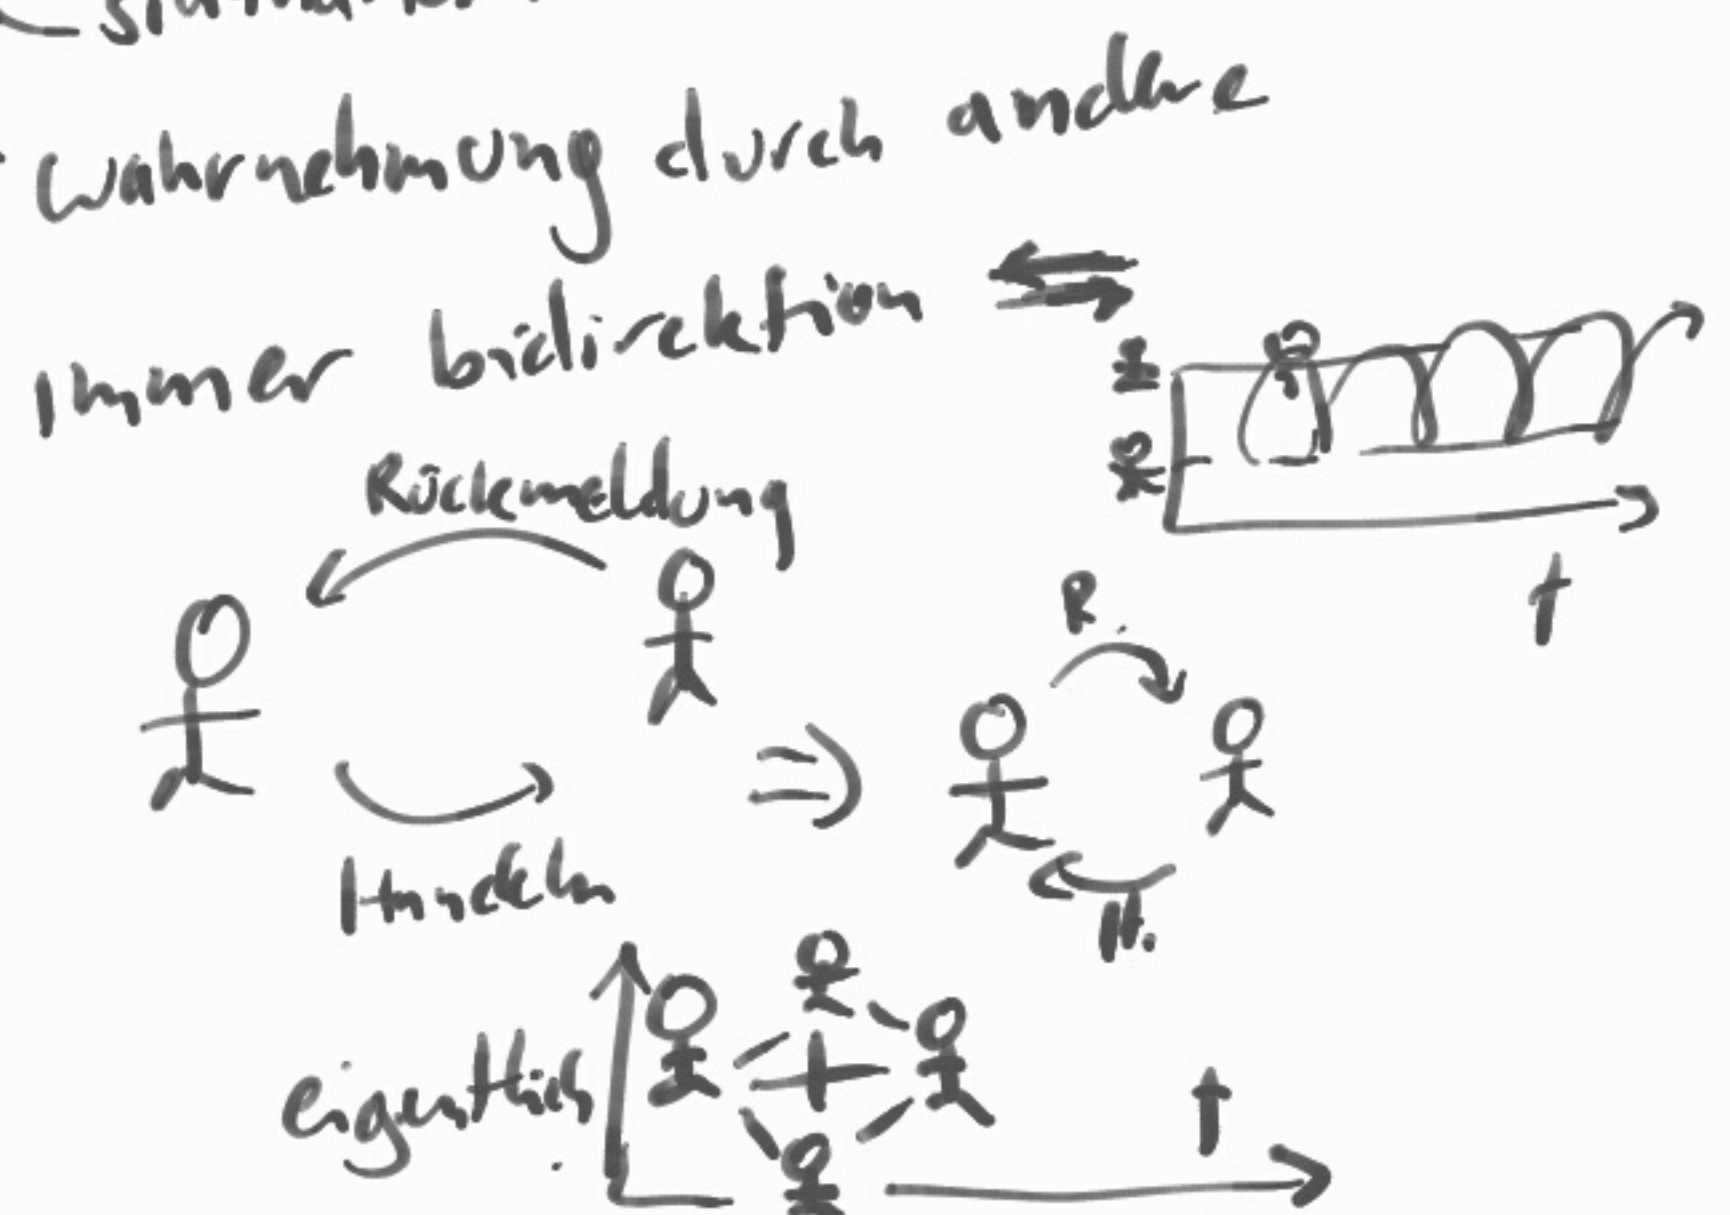 Wahrnehmung durch andere
immer bidirektion
Rückmeldung
t
R.
Handeln
H.
eigentlich
t